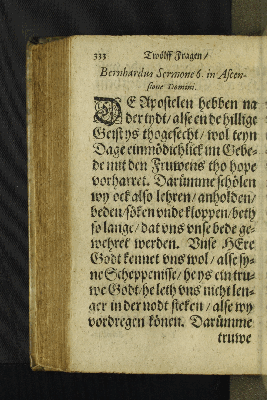 333 Twölff Fragen/
Bernhardus Sermone 6. in Ascen-
sione Domini.
DE Apostelen hebben na
der tydt/ alse en de hillige
Geist ys thogesecht/ wol teyn
Dage einmödichlick im Gebe-
de mit den Fruwens tho hope
vorharret. Darümme schölen
wy ock also lehren/ anholden/
beden/ söken vnde kloppen/ beth
so lange/ dat vns vnse bede ge-
wehret werden. Vnse HEre
Godt kennet vns wol/ alse sy-
ne Scheppenisse/ he ys ein tru-
we Godt/ he leth vns nicht len-
ger in der nodt steken/ alse wy
vördregen können. Darümme
truwe